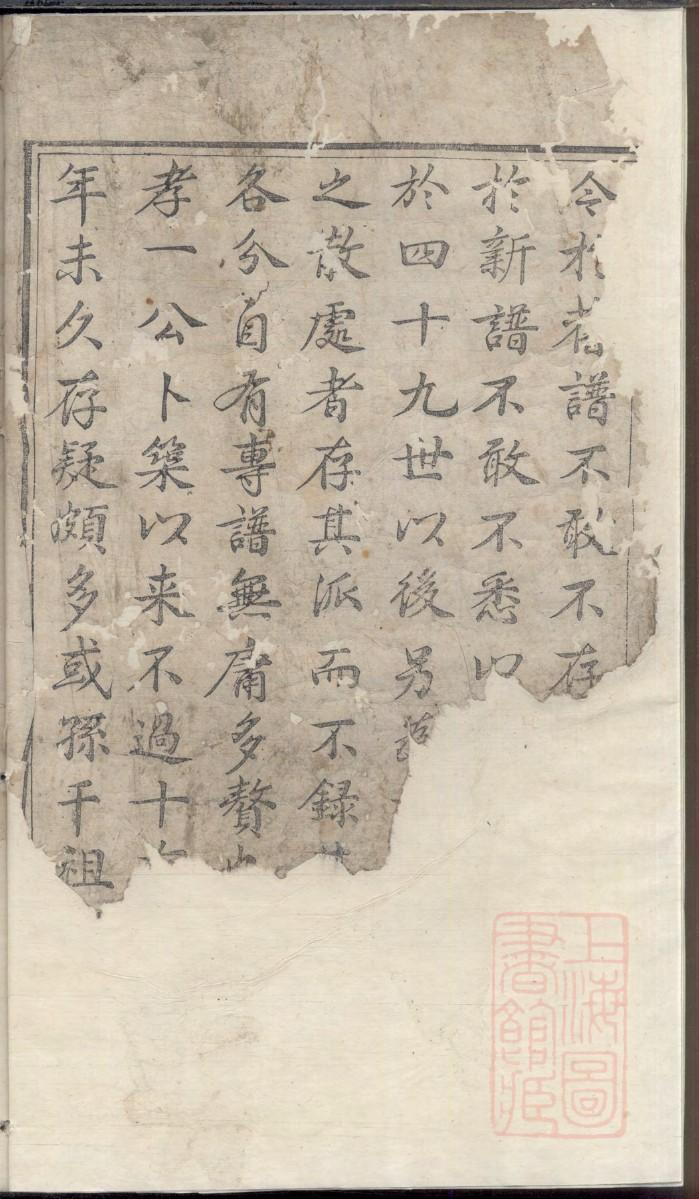 今於舊譜不敢不存
於新譜不敢不悉以
於四十九世以後另
之散處者存其派而不録
各分自有專譜無庸多贅
孝一公卜築以来不過十
年未久存疑頗多或孫干祖
上海圖
書館藏